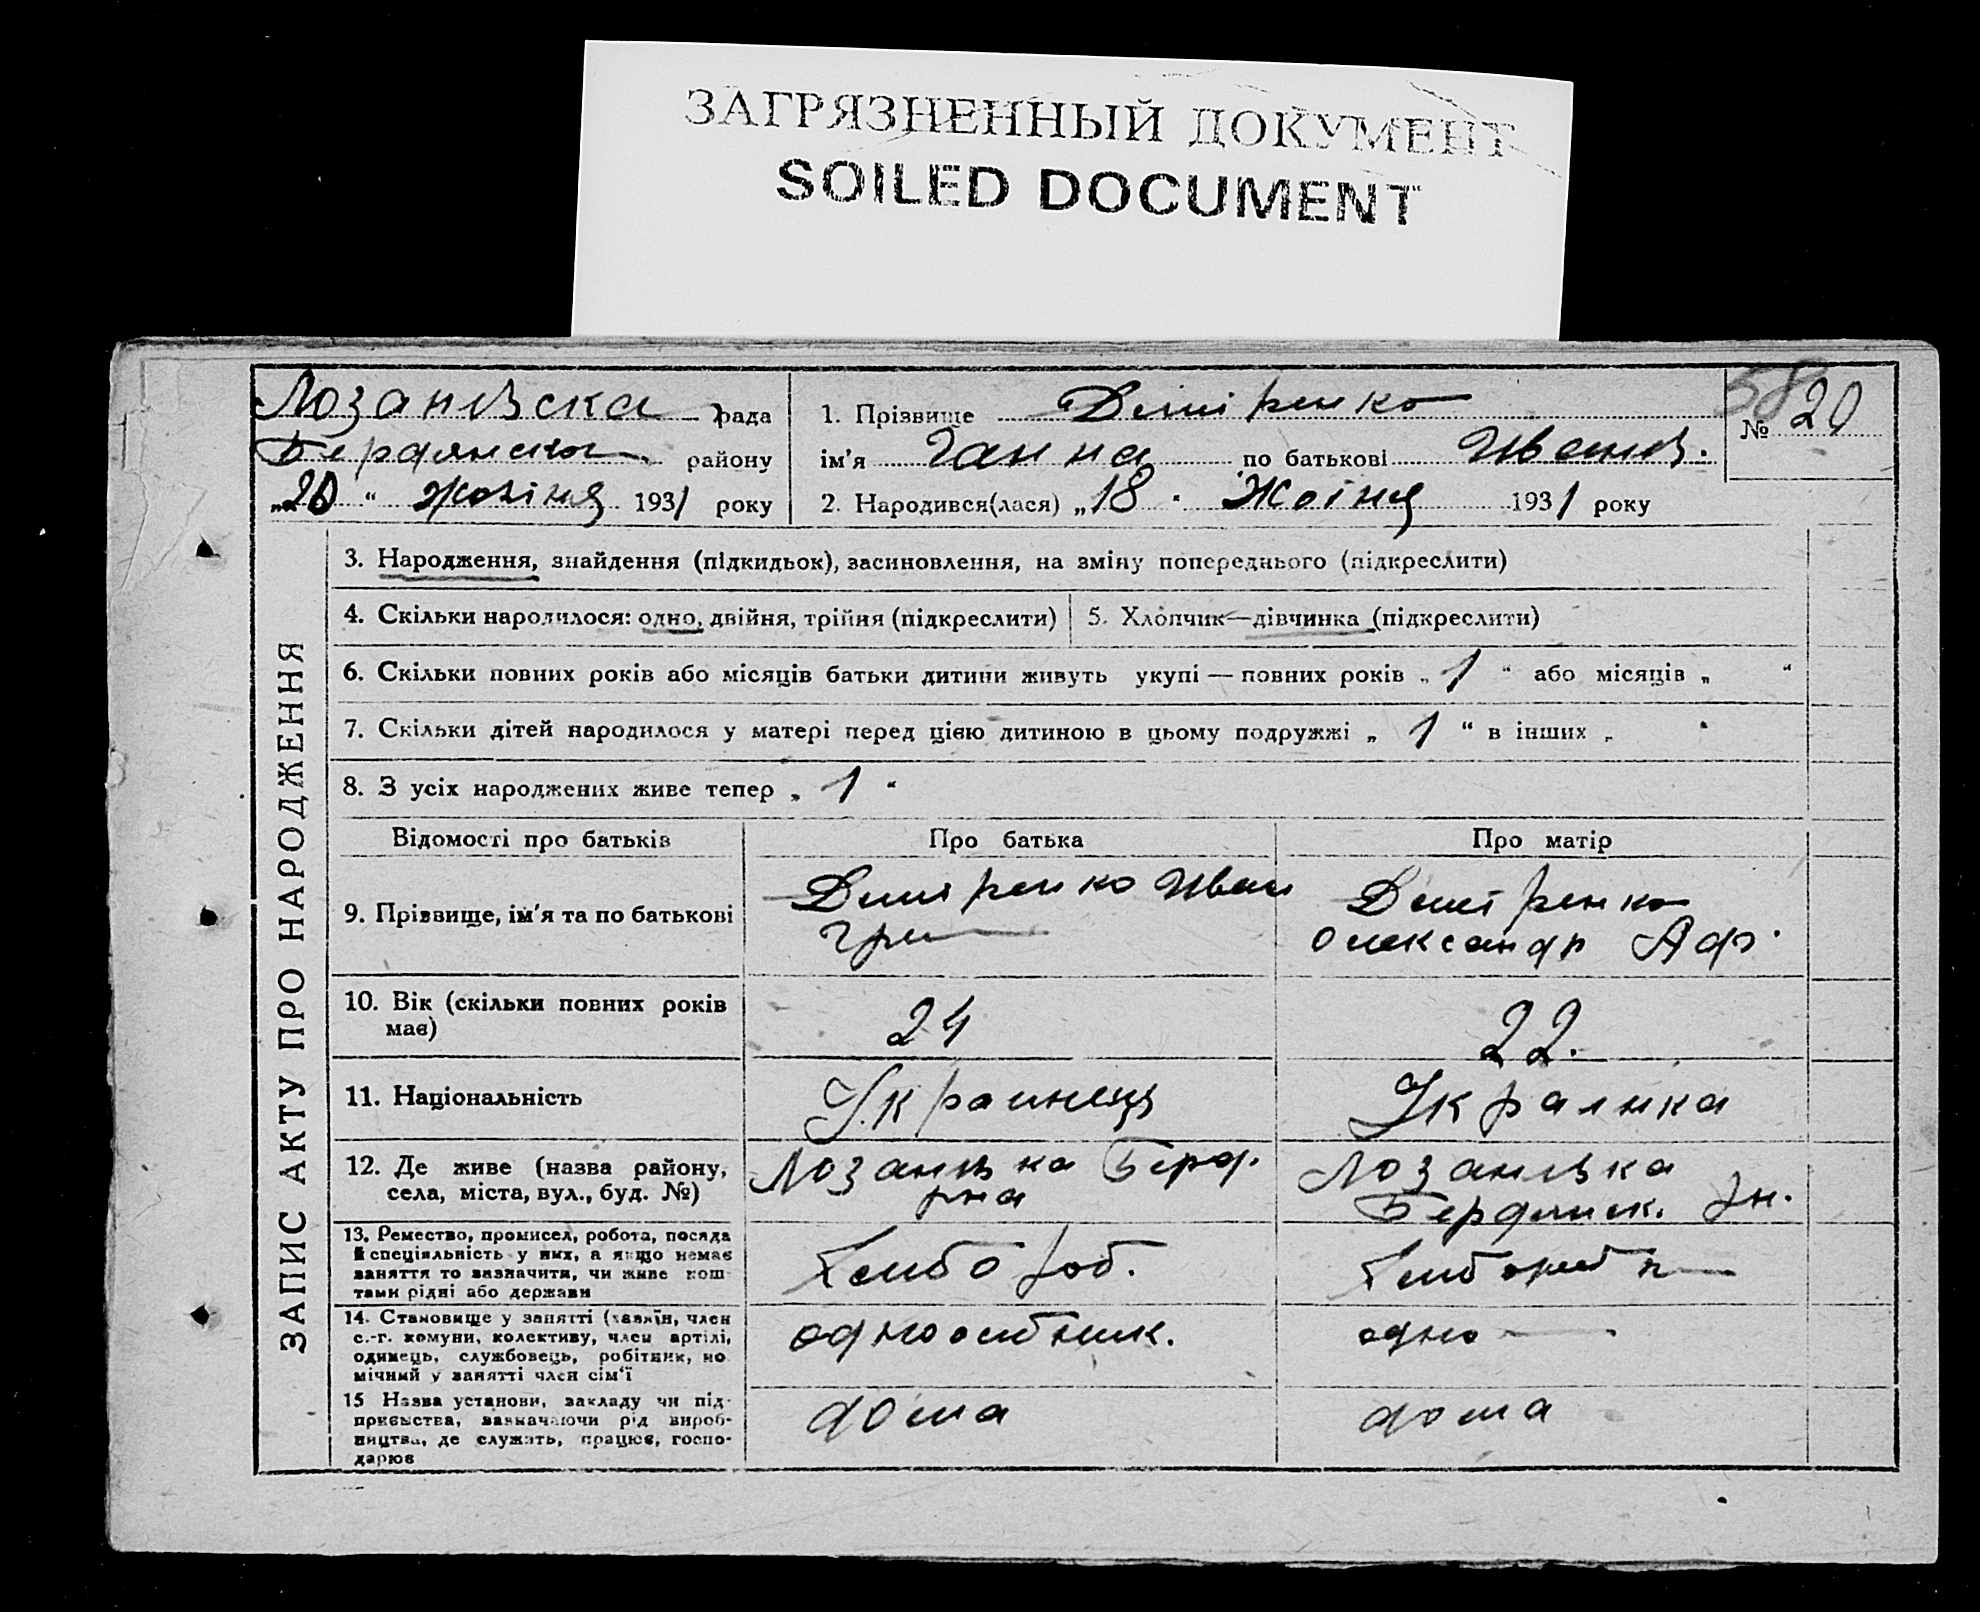 ЗАГРЯЗНЕННЫЙ ДОКУМЕНТ
SOILED DOCUMENT
58
Лозанівска рада
району
„20“ 1931 року
1. Прізвище Дмітренко
№ 20
ім'я Ганна по батькові Иванів.
2. Народився(лася) „18. 1931 року
ЗАПИС АКТУ ПРО НАРОДЖЕННЯ
3. Народження, знайдення (підкидьок), засиновлення, на зміну попереднього (підкреслити)
4. Скільки народилося: одно, двійня, трійня (підкреслити)
5. Хлопчик—дівчинка (підкреслити)
6. Скільки повних років або місяців батьки дитини живуть укупі — повних років „ 1 “ або місяців „ “
7. Скільки дітей народилося у матері перед цією дитиною в цьому подружжі „ 1 “ в інших „
8. З усіх народжених живе тепер „ 1 “
Відомості про батьків Про батька Про матір
9. Прізвище, ім'я та по батькові
Дмітренко Иван
Гри
Дмітренко
Олександр Аф.
10. Вік (скільки повних років
має)
24
22.
11. Національність
Украинець
Украинка
12. Де живе (назва району,
села, міста, вул., буд. №)
Лозанівка Берд.
рна
Лозанівка
Бердянск. рн.
13. Ремество, промисел, робота, посада
й спеціяльність у них, а якщо немає
заняття то зазначити, чи живе кош-
тами рідні або держави
Хлібороб.
Хлібороб
14. Становище у занятті (хазяїн, член
с.-г. комуни, колективу, член артілі,
одинець, службовець, робітник, по
мічний у занятті член сім'ї
одноосібник.
одно
15 Назва установи, закладу чи під-
приємства, зазначаючи рід вироб-
ництва, де служить, працює, госпо-
дарює
дома
дома